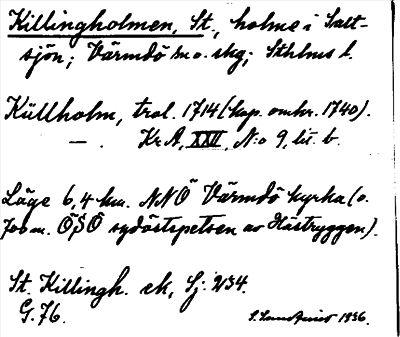 Killingholmen, St., holme i Salt-
sjön; Värmdö sn o. skg; Sthlms l.
Küllholm, trol. 1714 (kop. omkr. 1740).
— . Kr A, XXII, N:o 9, lit. b.
Läge 6,4 km. NNÖ Värmdö kyrka (o.
700 m. ÖSÖ sydöstspetsen av Hästryggen).
St. Killingh. ek, Sj: 234.
G. 76.
1936.